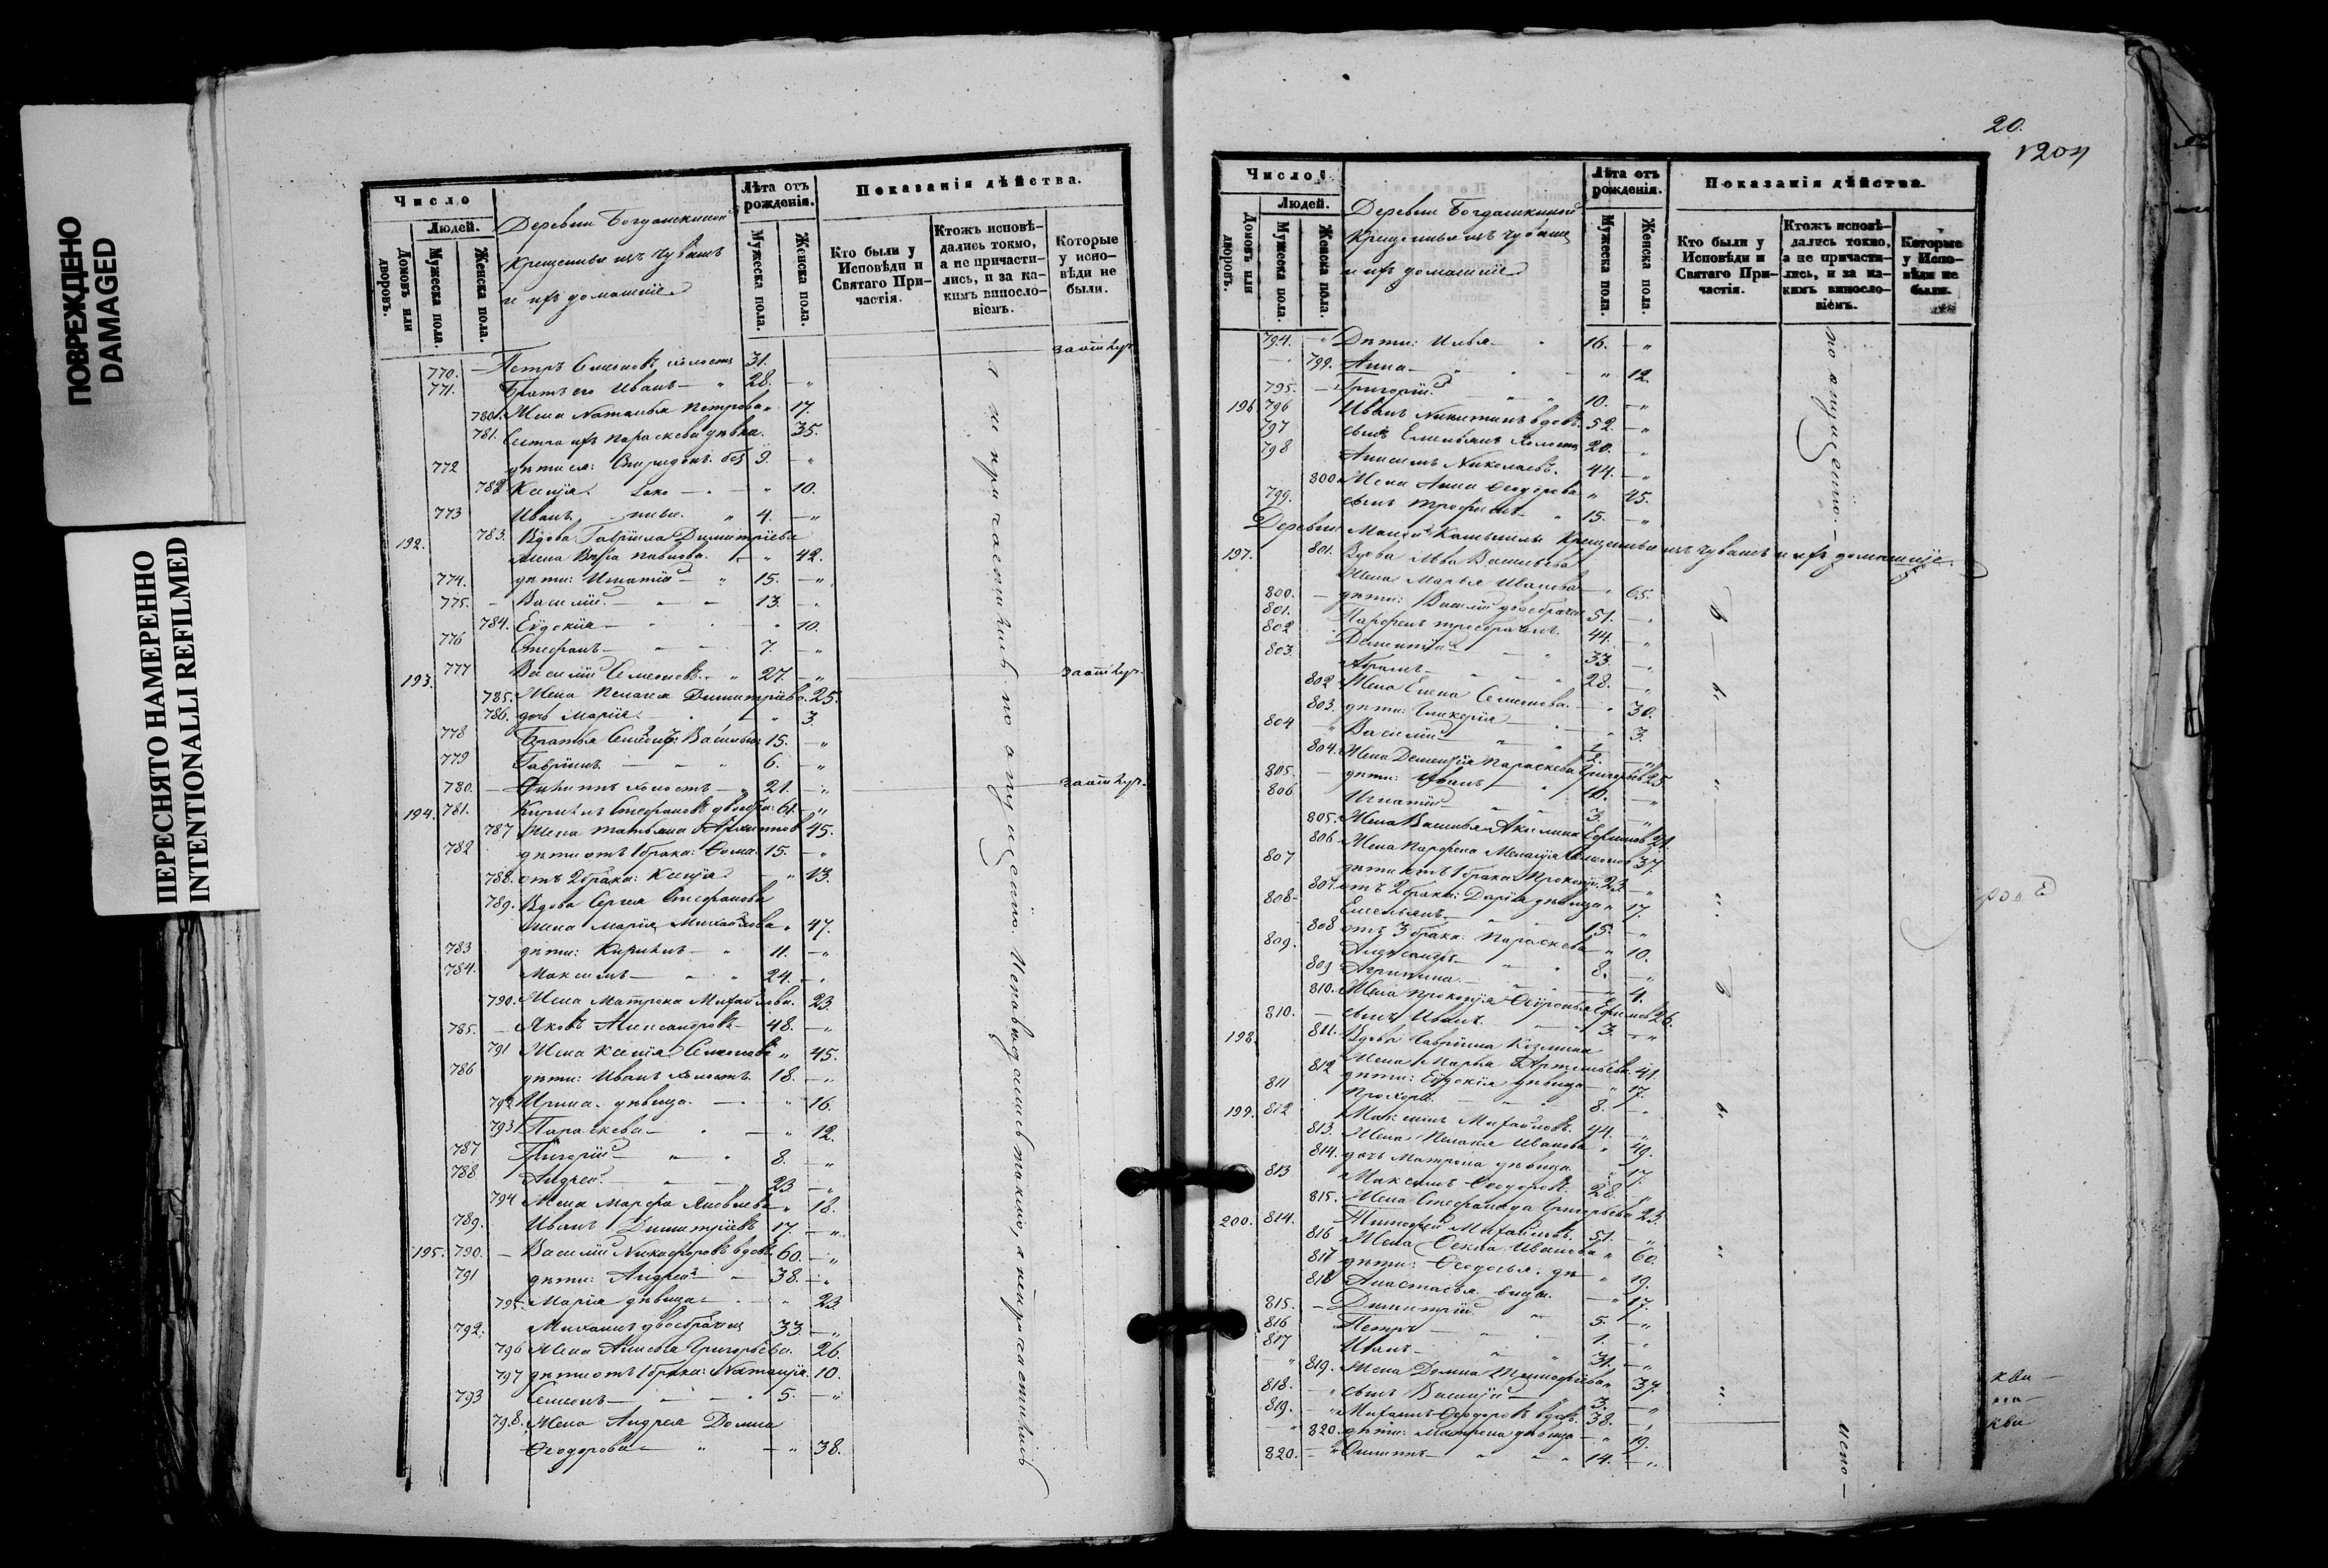 ПОВРЕЖДЕНО
DAMAGED
ПЕРЕСНЯТО НАМЕРЕННО
INTENTIONALLI REFILMED
Число
Людей.
Домовъ или дворовъ.
Мужеска пола.
Женска пола.
Деревни Богдашкиной
крещенные изъ чувашъ
и ихъ домашніе
Лѣта отъ рожденія.
Мужеска пола.
Женска пола.
Показанія дѣйства.
Кто были у Исповѣди и Святаго Причастія.
Ктожъ исповѣдались токмо, а не причастились, и за какимъ винословіемъ.
Которые у исповѣди не были.
770. Петръ Семеновъ холостъ 31.
771. Братъ его Иванъ 28.
780. Жена Наталья Петрова 17.
781. Сестра ихъ Параскева дѣвка. 35.
772 дѣти ея: Спиридонъ. 9.
782 Ксенія. 10.
773 Иванъ 4.
192. 783. Вдова Гавріила Димитріева
жена Павлова. 42.
774. дѣти: Игнатій 15.
775. Василій. 13.
784. Евдокія 10.
776 Стефанъ 7.
193. 777 Василій Семеновъ 27.
785. Жена Пелагея Димитріева. 25.
786. дочь Марія. 3
778 Братья 15.
779 Гавріилъ. 6.
780. Филиппъ холостъ 21.
194. 781. Кириллъ Стефановъ 61.
787 Жена Татьяна 45.
782 дѣти отъ 1 брака: Ѳома. 15.
788. отъ 2 брака: Ксенія 13.
789. Вдова Сергея Стефанова
жена Марія Михайлова 47.
783 дѣти: Кириллъ 11.
784. Максимъ 24.
790. Жена Матрена Михайлова. 23.
785. Яковъ Александровъ 48.
791 Жена Ксенія Семенова 45.
786 дѣти: Иванъ холостъ. 18.
792 Ирина дѣвица. 16.
793 Параскева 12.
787 Григорій 8.
788 Андрей 23
794 Жена Марфа Яковлева 18.
789. Иванъ Димитріевъ 17.
195. 790. Василій Никифоровъ вдовъ 60.
791 дѣти: Андрей 38.
795. Марія дѣвица 23
792. Михаилъ двоебрачен 33.
796 Жена Григорьева. 26.
797 дѣти отъ 1 брака: Наталія. 10.
793 Семенъ 5.
798. Жена Андрея Домна
Ѳеодорова 38.
не причастились по опущенію. Исповѣдались токмо, а не причастились
20.
Число
Людей.
Домовъ или дворовъ.
Мужеска пола.
Женска пола.
Деревни Богдашкиной
крещенные изъ чувашъ
и ихъ домашніе
Лѣта отъ рожденія.
Мужеска пола.
Женска пола.
Показанія дѣйства.
Кто были у Исповѣди и Святаго Причастія.
Ктожъ исповѣдались токмо, а не причастились, и за какимъ винословіемъ.
Которые у Исповѣди не были.
794. Дѣти: Илья 16.
799. Анна 12.
795. Григорій 10.
196 796 Иванъ Никитинъ вдовъ. 52.
797 сынъ Емельянъ холостъ 20.
798 Анисимъ Николаевъ. 44.
800 Жена Анна Ѳеодорова 45.
799. сынъ Трофимъ 15.
Деревни Малой крещенные изъ чувашъ и ихъ домашніе.
197. 801. Вдова Льва Васильева
жена Марья Иванова 65.
800. дѣти: Василій двоебрачен 51.
801. Парфенъ троебраченъ. 44.
802 Дементій 33.
803. Абрамъ 28.
802 Жена Елена Семенова. 30.
803. дѣти: Гликерія 3.
804 Василій 1.
804. Жена Дементія Параскева Григорьев 25
805. дѣти: Иванъ 10.
806 Игнатій 3.
805. Жена Василья Акилина Ефимов 21.
806 Жена Парфена Меланія 37.
807 дѣти отъ 1 брака: Прокопій. 23
807. отъ 2 брака: Дарія дѣвица 17.
808 Емельянъ 15.
808 отъ 3 брака: Параскева 10.
809. Александръ 8.
809 Агрипина 4.
810. Жена Прокопія Ефимов 26.
810. сынъ Иванъ. 3.
198. 811. Вдова Гавріила Козмина
жена Марья Артемьева. 41.
812 дѣти: Евдокія дѣвица 17.
811 Прохоръ 8.
199. 812 Максимъ Михайловъ. 44.
813. Жена Пелагея Иванова 49.
814. дочь Матрена дѣвица 17.
813 Максимъ Ѳеодоровъ. 28.
815. Жена Стефанида Григорьева 23.
200. 814. Тимофей Михайловъ. 51.
816 Жена Ѳекла Иванова 60.
817 дѣти: Ѳеодосья дѣ 19.
818 Анастасья вицы 17.
815. Димитрій 5.
816 Петръ 1.
817 Иванъ 31.
819. Жена Домна Тимофѣева 37.
818. сынъ Василій 3.
819. Михаилъ Ѳеодоровъ вдовъ. 38.
820. дѣти: Матрена дѣвица 19.
820. Филиппъ 14.
по опущенію.
испо—